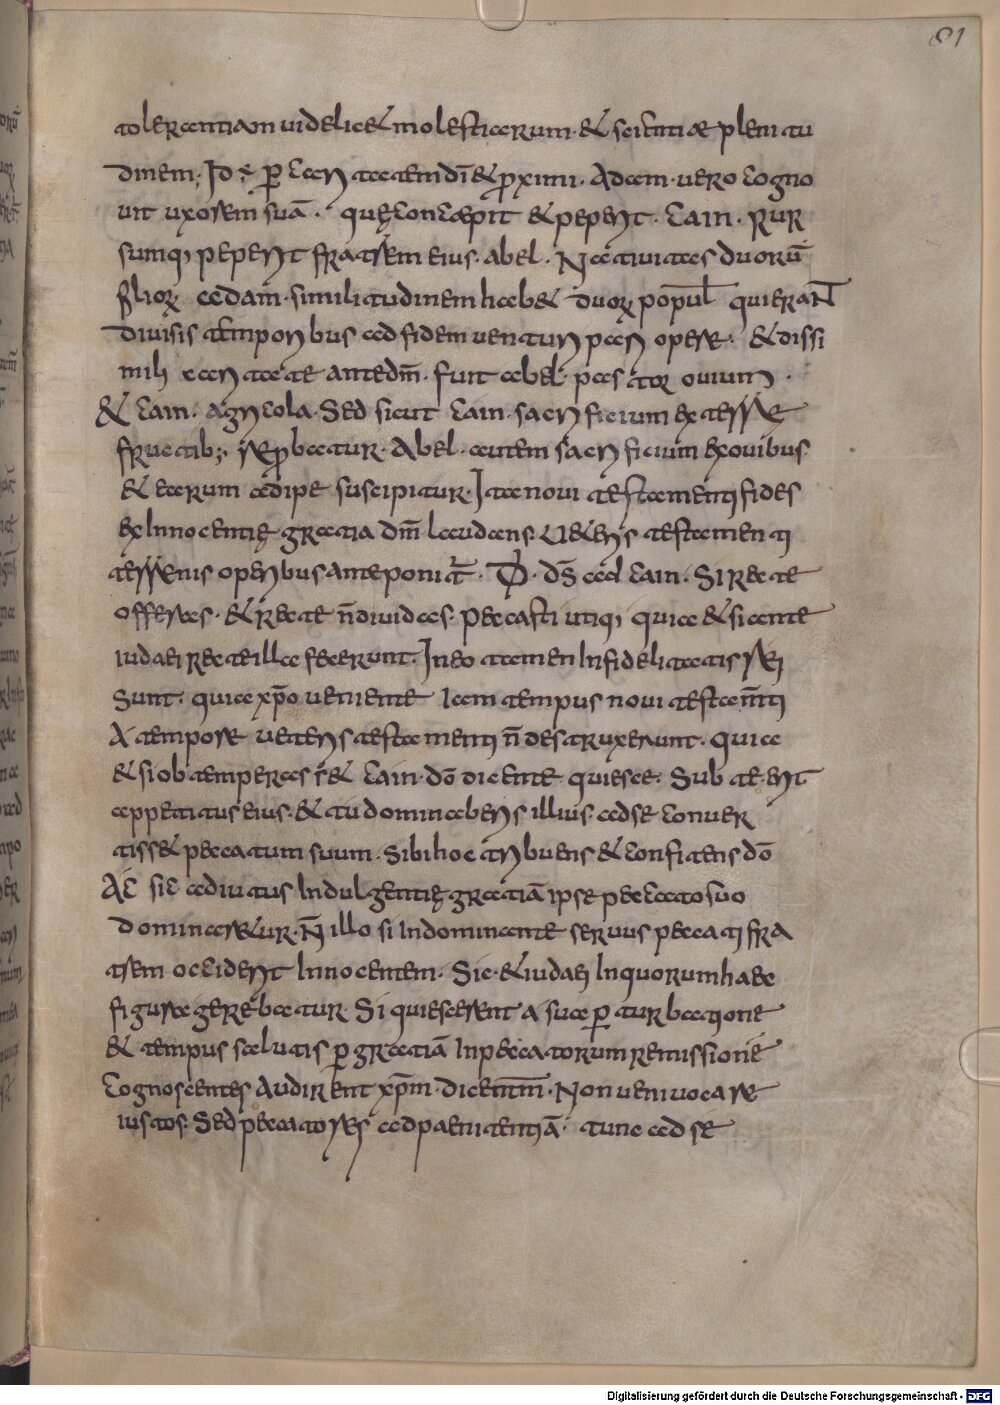 81
tolerantiam videlicet molestiarum· et scientiae plenitu
dinem; Id ÷ p̄ caritatem dī et proximi· Adam· vero cogno
vit uxorem suā· quę concepit et peperit· Cain· Rur
sumq; peperit fratrem eius· abel· Nativitas duorū
filioꝝ adam· similitudinem habet duoꝝ popul̄ qui erant
Divisis temporibus ad fidem venturi pari opere· et dissi
mili caritate ante dm̄· fuit abel· pastor ovium·
et Cain· agricola· Sed sicut Cain· sacrificium ex terrae
fructib;· reprobatur· Abel· autem sacrificium ex ovibus·
et earum adipe suscipitur· Ita novi testamenti fides
ex Innocentię gratia dm̄ laudans· Veteris testamenti
terrenis operibus anteponit̄· D̄· ds̄ ad Cain· Si recte
offeras· et recte n̄ dividas· Peccasti utiq; quia etsi ante
iudaei recte illa fecerunt· In eo tamen Infidelitatis rei
Sunt· quia xp̄o veniente Iam tempus novi testam̄ti
A tempore veteris testamenti n̄ destruxerunt· quia
etsi obtemperasset Cain· dō dicente quiesce· Sub te erit
appetitus eius· et tu dominaberis illius· ad se conver
tisset peccatum suum· Sibi hoc tribuens et confitens dō
Ac sic adiutus Indulgentię gratiā ipse peccato suo
dominaretur· N̄ illo si In dominante servus peccati fra
trem occiderit Innocentem· Sic· et iudaei In quorum haec
figura gerebatur· Si quiescerent a sua p̄turbatione
et tempus salutis p̄ gratiā In peccatorum remissione
Cognoscentes Audirent xp̄m· dicentm̄· Non veni vocare
iustos· Sed peccatores ad paenitentiā· tunc ad se
Digitalisierung gefördert durch die Deutsche Forschungsgemeinschaft - DFG